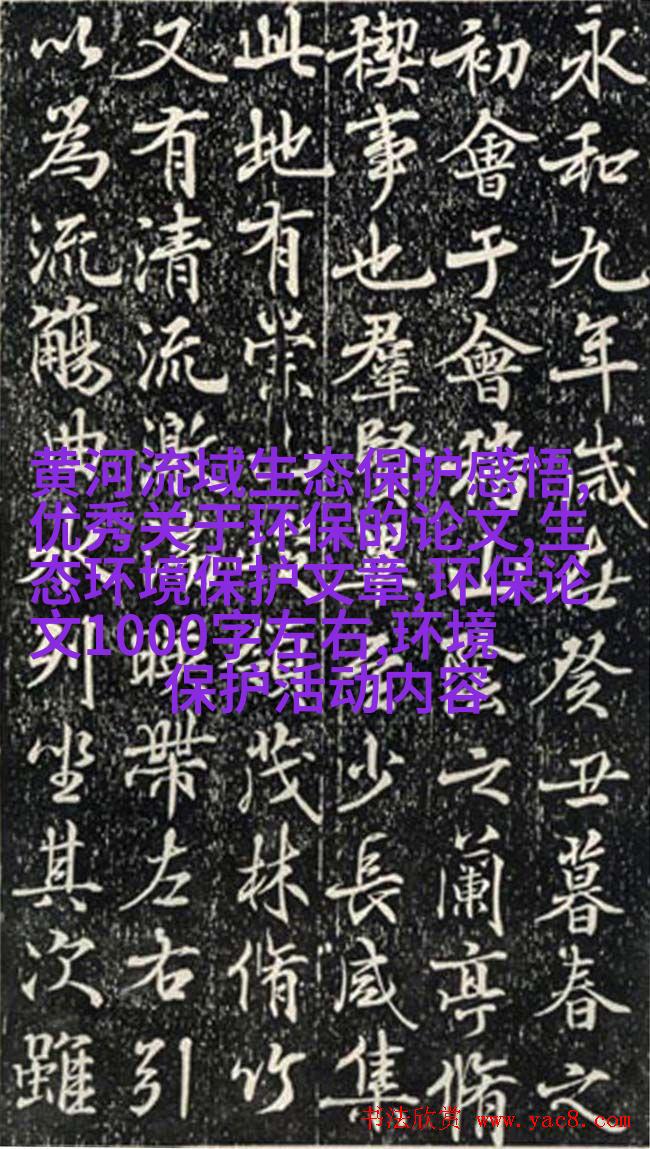 永和九年歲在癸丑暮春之
初會于會稽山陰之蘭亭脩
稧事也羣賢畢至少長咸集
此地有崇領茂林脩竹
又有清流激暎帶左右引
以為流觴曲水列坐其次雖
黄河流域生态保护感悟,
优秀关于环保的论文,生
态环境保护文章,环保论
文1000字左右,环境
保护活动内容
书法欣赏 www.yac8.com